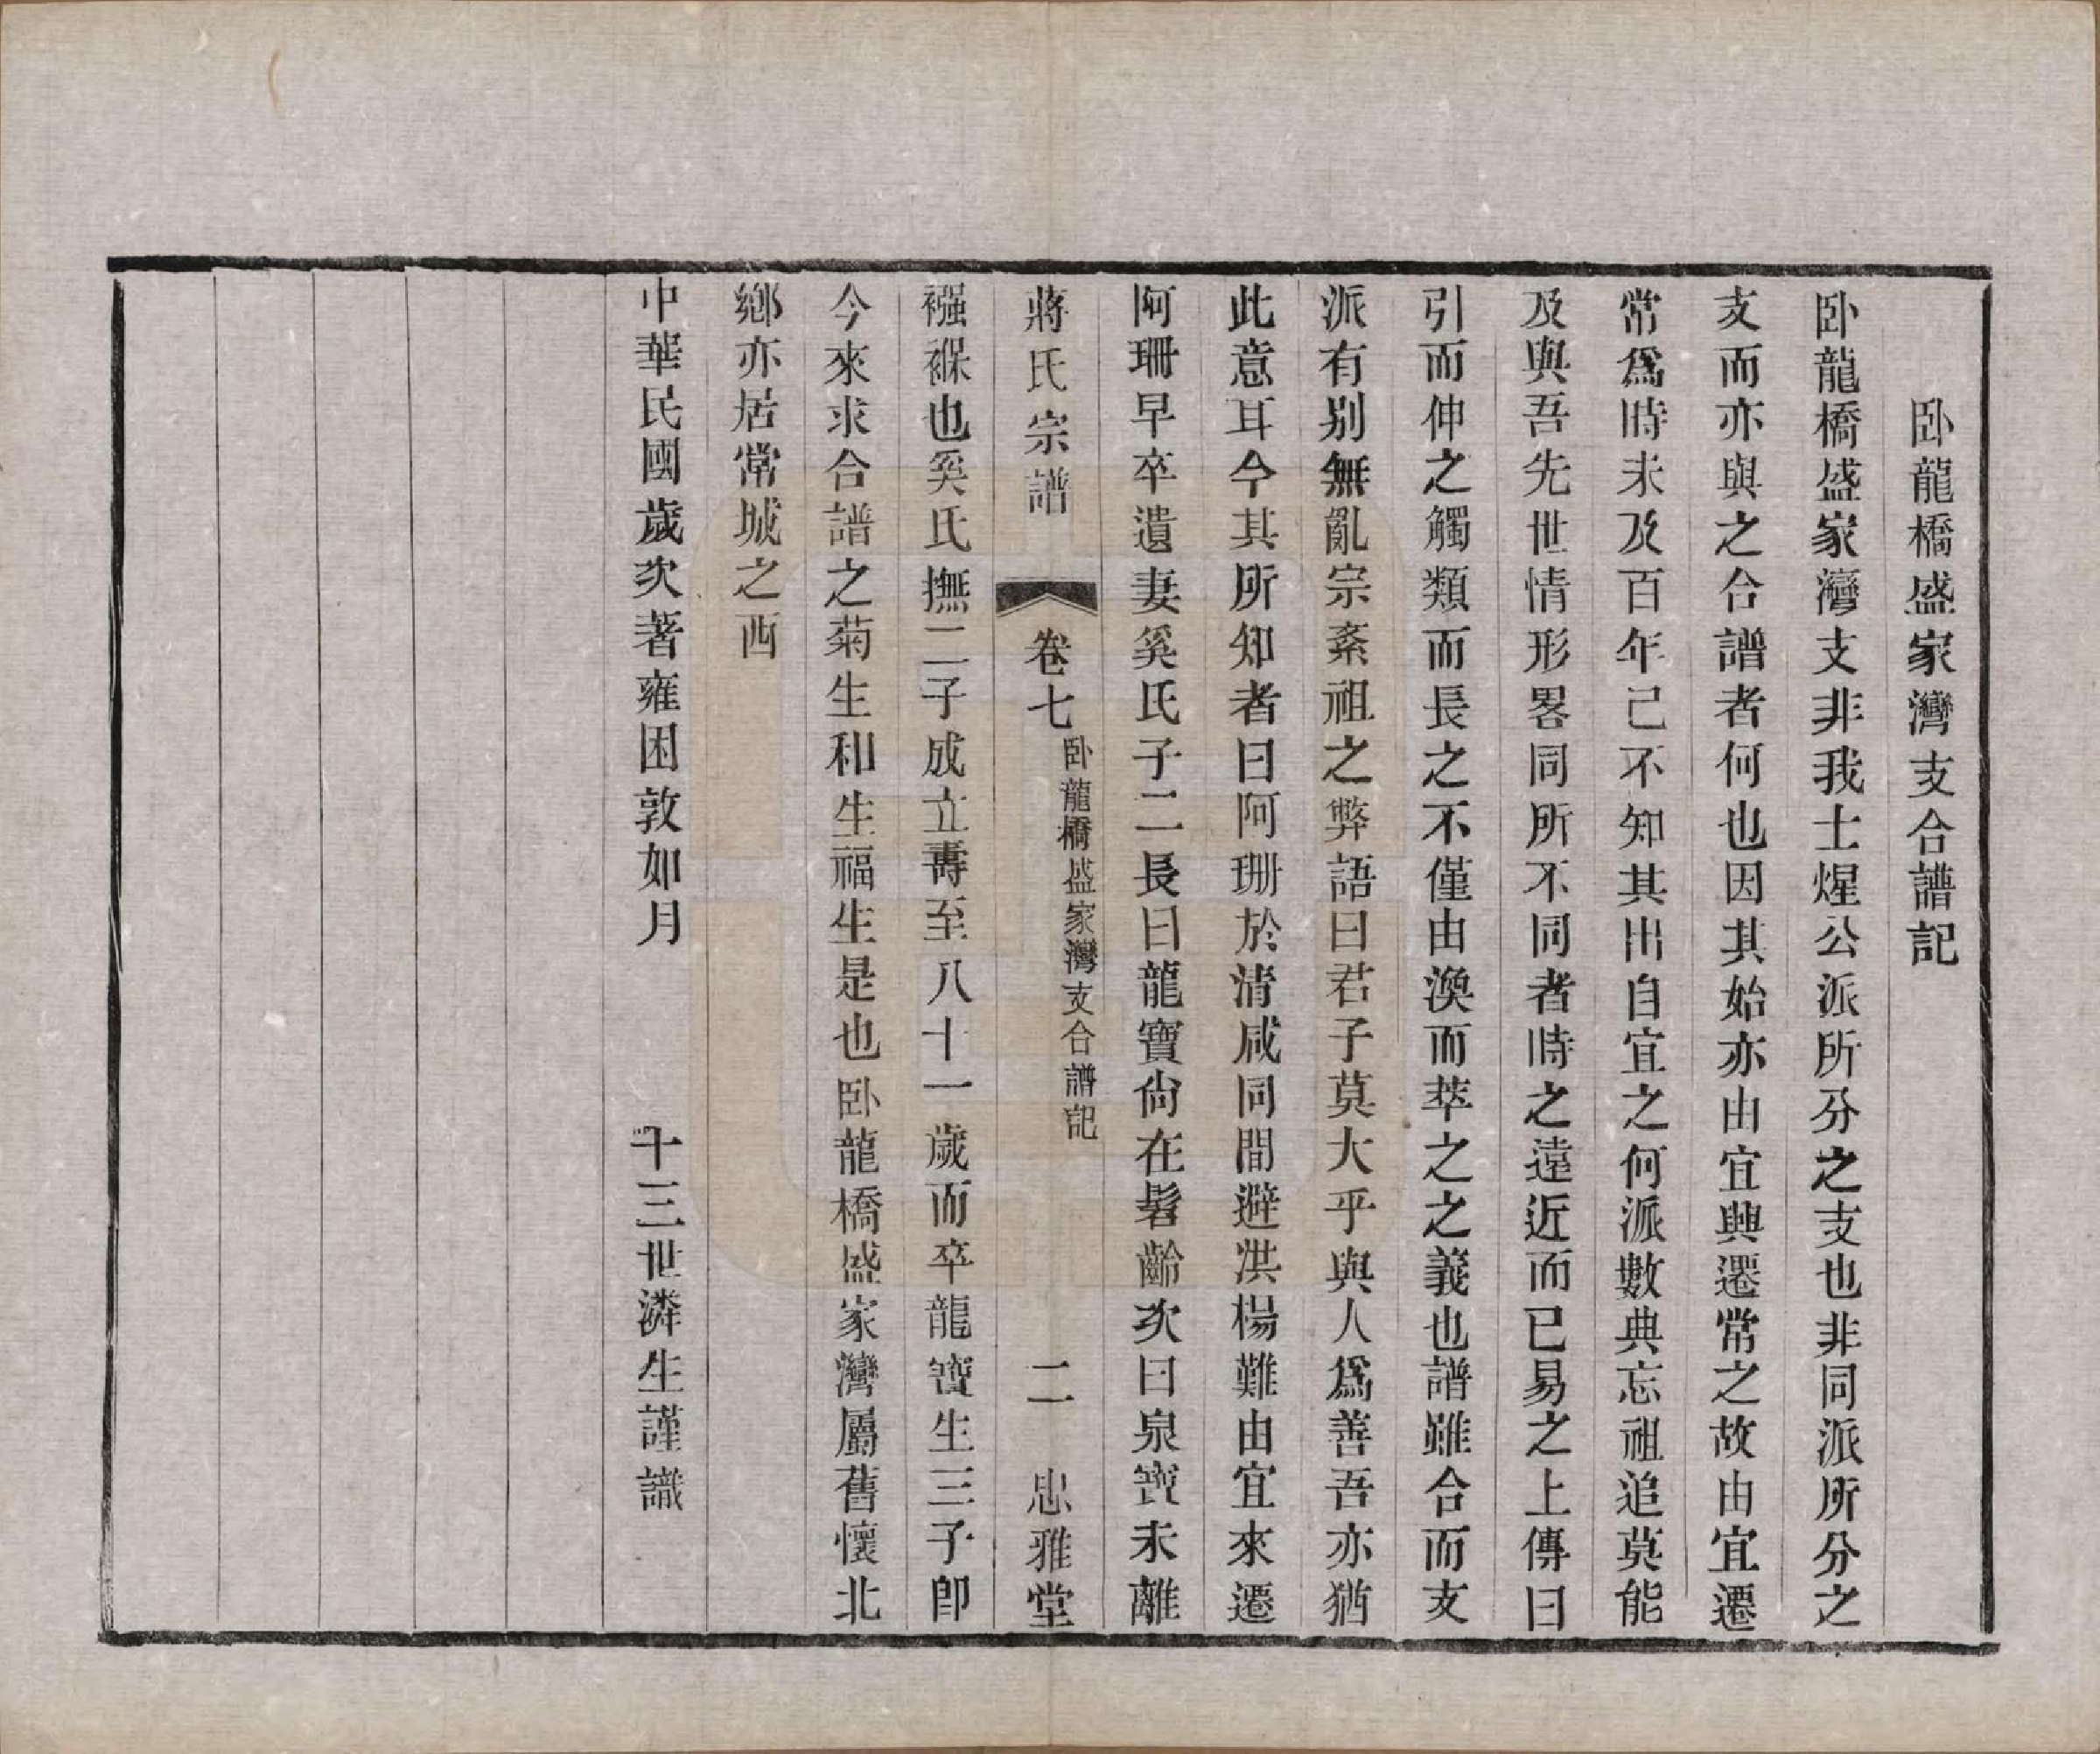 卧龍橋盛家灣支合譜記
卧龍橋盛家灣支非我士煋公派所分之支也非同派所分之
支而亦與之合譜者何也因其始亦由宜興遷常之故由宜遷
常爲時未及百年己不知其出自宜之何派數典忘祖追莫能
及與吾先世情形畧同所不同者時之遠近而已易之上傳曰
引而伸之觸類而長之不僅由渙而萃之之義也譜雖合而支
派有别無亂宗紊祖之弊語曰君子莫大乎與人爲善吾亦猶
此意耳今其所知者曰阿珊於清咸同間避洪楊難由宜來遷
阿珊早卒遺妻奚氏子二長曰龍寶尙在髫齡次曰泉寶未離
蔣氏宗譜 卷七 卧龍橋盛家灣支合譜記 二 忠雅堂
襁褓也奚氏撫二子成立壽至八十一歲而卒龍寶生三子卽
今來求合譜之菊生和生福生是也卧龍橋盛家灣屬舊懷北
鄉亦居常城之西
中華民國歲次著雍困敦如月 十三世潾生謹識